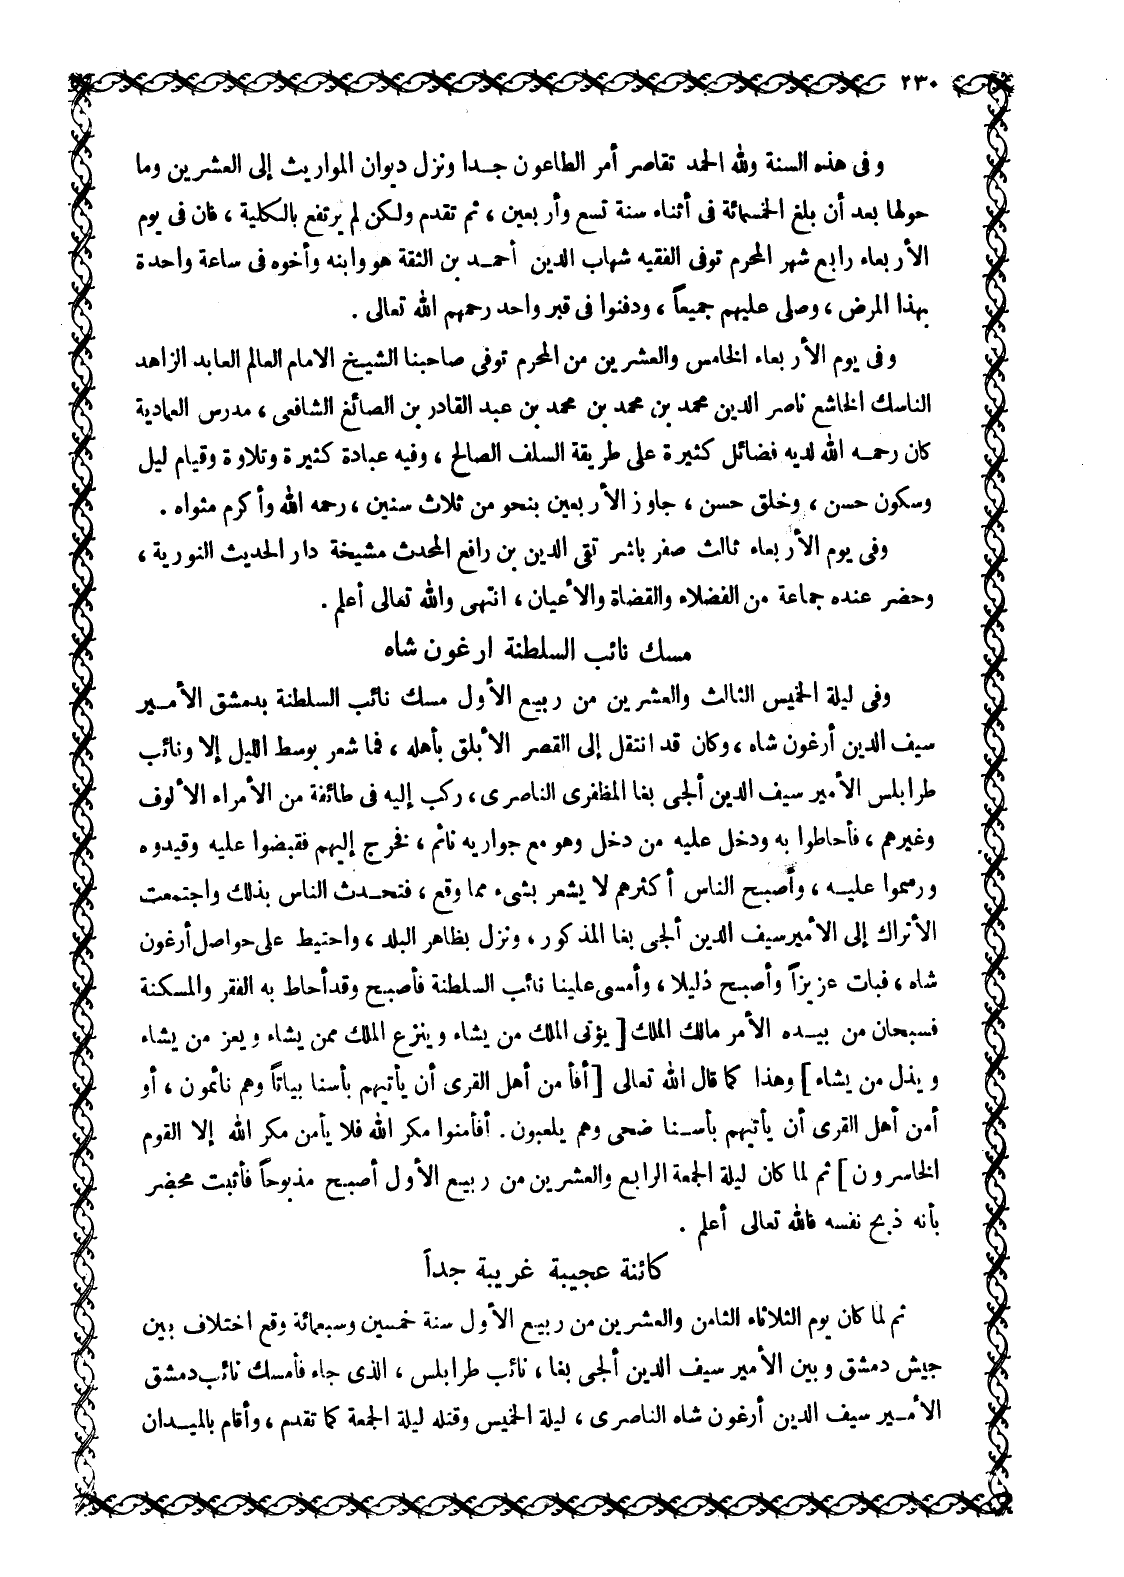 ٢٣٠
وفى هذه السنة ولله الحمد تقاصر أمر الطاعون جدا ونزل ديوان المواريث إلى العشرين وما
حولها بعد أن بلغ الخمسمائة فى أثناء سنة تسع وأربعين ، ثم تقدم ولكن لم يرتفع بالكلية ، فان فى يوم
الأربعاء رابع شهر المحرم توفى الفقيه شهاب الدين أحمد بن الثقة هو وابنه وأخوه فى ساعة واحدة
بهذا المرض ، وصلى عليهم جميعاً ، ودفنوا فى قبر واحد رحمهم الله تعالى .
وفى يوم الأربعاء الخامس والعشرين من المحرم توفى صاحبنا الشيخ الامام العالم العابد الزاهد
الناسك الخاشع ناصر الدين محمد بن محمد بن محمد بن عبد القادر بن الصائغ الشافعى ، مدرس العمادية
كان رحمه الله لديه فضائل كثيرة على طريقة السلف الصالح ، وفيه عبادة كثيرة وتلاوة وقيام ليل
وسكون حسن ، وخلق حسن ، جاوز الأربعين بنحو من ثلاث سنين ، رحمه الله وأكرم مثواه .
وفى يوم الأربعاء ثالث صفر باشر تقى الدين بن رافع المحدث مشيخة دار الحديث النورية ،
وحضر عنده جماعة من الفضلاء والقضاة والأعيان ، انتهى والله تعالى أعلم .
مسك نائب السلطنة ارغون شاه
وفى ليلة الخميس الثالث والعشرين من ربيع الأول مسك نائب السلطنة بدمشق الأمير
سيف الدين أرغون شاه ، وكان قد انتقل إلى القصر الأبلق بأهله ، فما شعر بوسط الليل إلا ونائب
طرابلس الأمير سيف الدين ألجى بغا المظفرى الناصرى ، ركب إليه فى طائفة من الأمراء الألوف
وغيرهم ، فأحاطوا به ودخل عليه من دخل وهو مع جواريه نائم ، فخرج إليهم فقبضوا عليه وقيدوه
ورسموا عليه ، وأصبح الناس أكثرهم لا يشعر بشىء مما وقع ، فتحدث الناس بذلك واجتمعت
الأتراك إلى الأمير سيف الدين ألجى بغا المذكور ، ونزل بظاهر البلد ، واحتيط على حواصل أرغون
شاه ، فبات عزيزاً وأصبح ذليلا ، وأمسى علينا نائب السلطنة فأصبح وقد أحاط به الفقر والمسكنة
فسبحان من بيده الأمر مالك الملك [ يؤتى الملك من يشاء وينزع الملك ممن يشاء ويعز من يشاء
ويذل من يشاء ] وهذا كما قال الله تعالى [ أفأمن أهل القرى أن يأتيهم بأسنا بياتاً وهم نائمون ، أو
أمن أهل القرى أن يأتيهم بأسنا ضحى وهم يلعبون . أفأمنوا مكر الله فلا يأمن مكر الله إلا القوم
الخاسرون ] ثم لما كان ليلة الجمعة الرابع والعشرين من ربيع الأول أصبح مذبوحاً فأثبت محضر
بأنه ذبح نفسه فالله تعالى أعلم .
كائنة عجيبة غريبة جداً
ثم لما كان يوم الثلاثاء الثامن والعشرين من ربيع الأول سنة خمسين وسبعمائة وقع اختلاف بين
جيش دمشق وبين الأمير سيف الدين ألجى بغا ، نائب طرابلس ، الذى جاء فأمسك نائب دمشق
الأمير سيف الدين أرغون شاه الناصرى ، ليلة الخميس وقتله ليلة الجمعة كما تقدم ، وأقام بالميدان